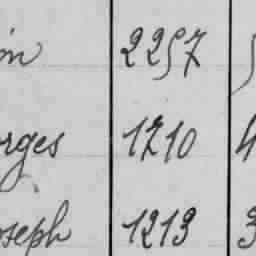 on 2257
orges 1210 4
oseph 1213 3